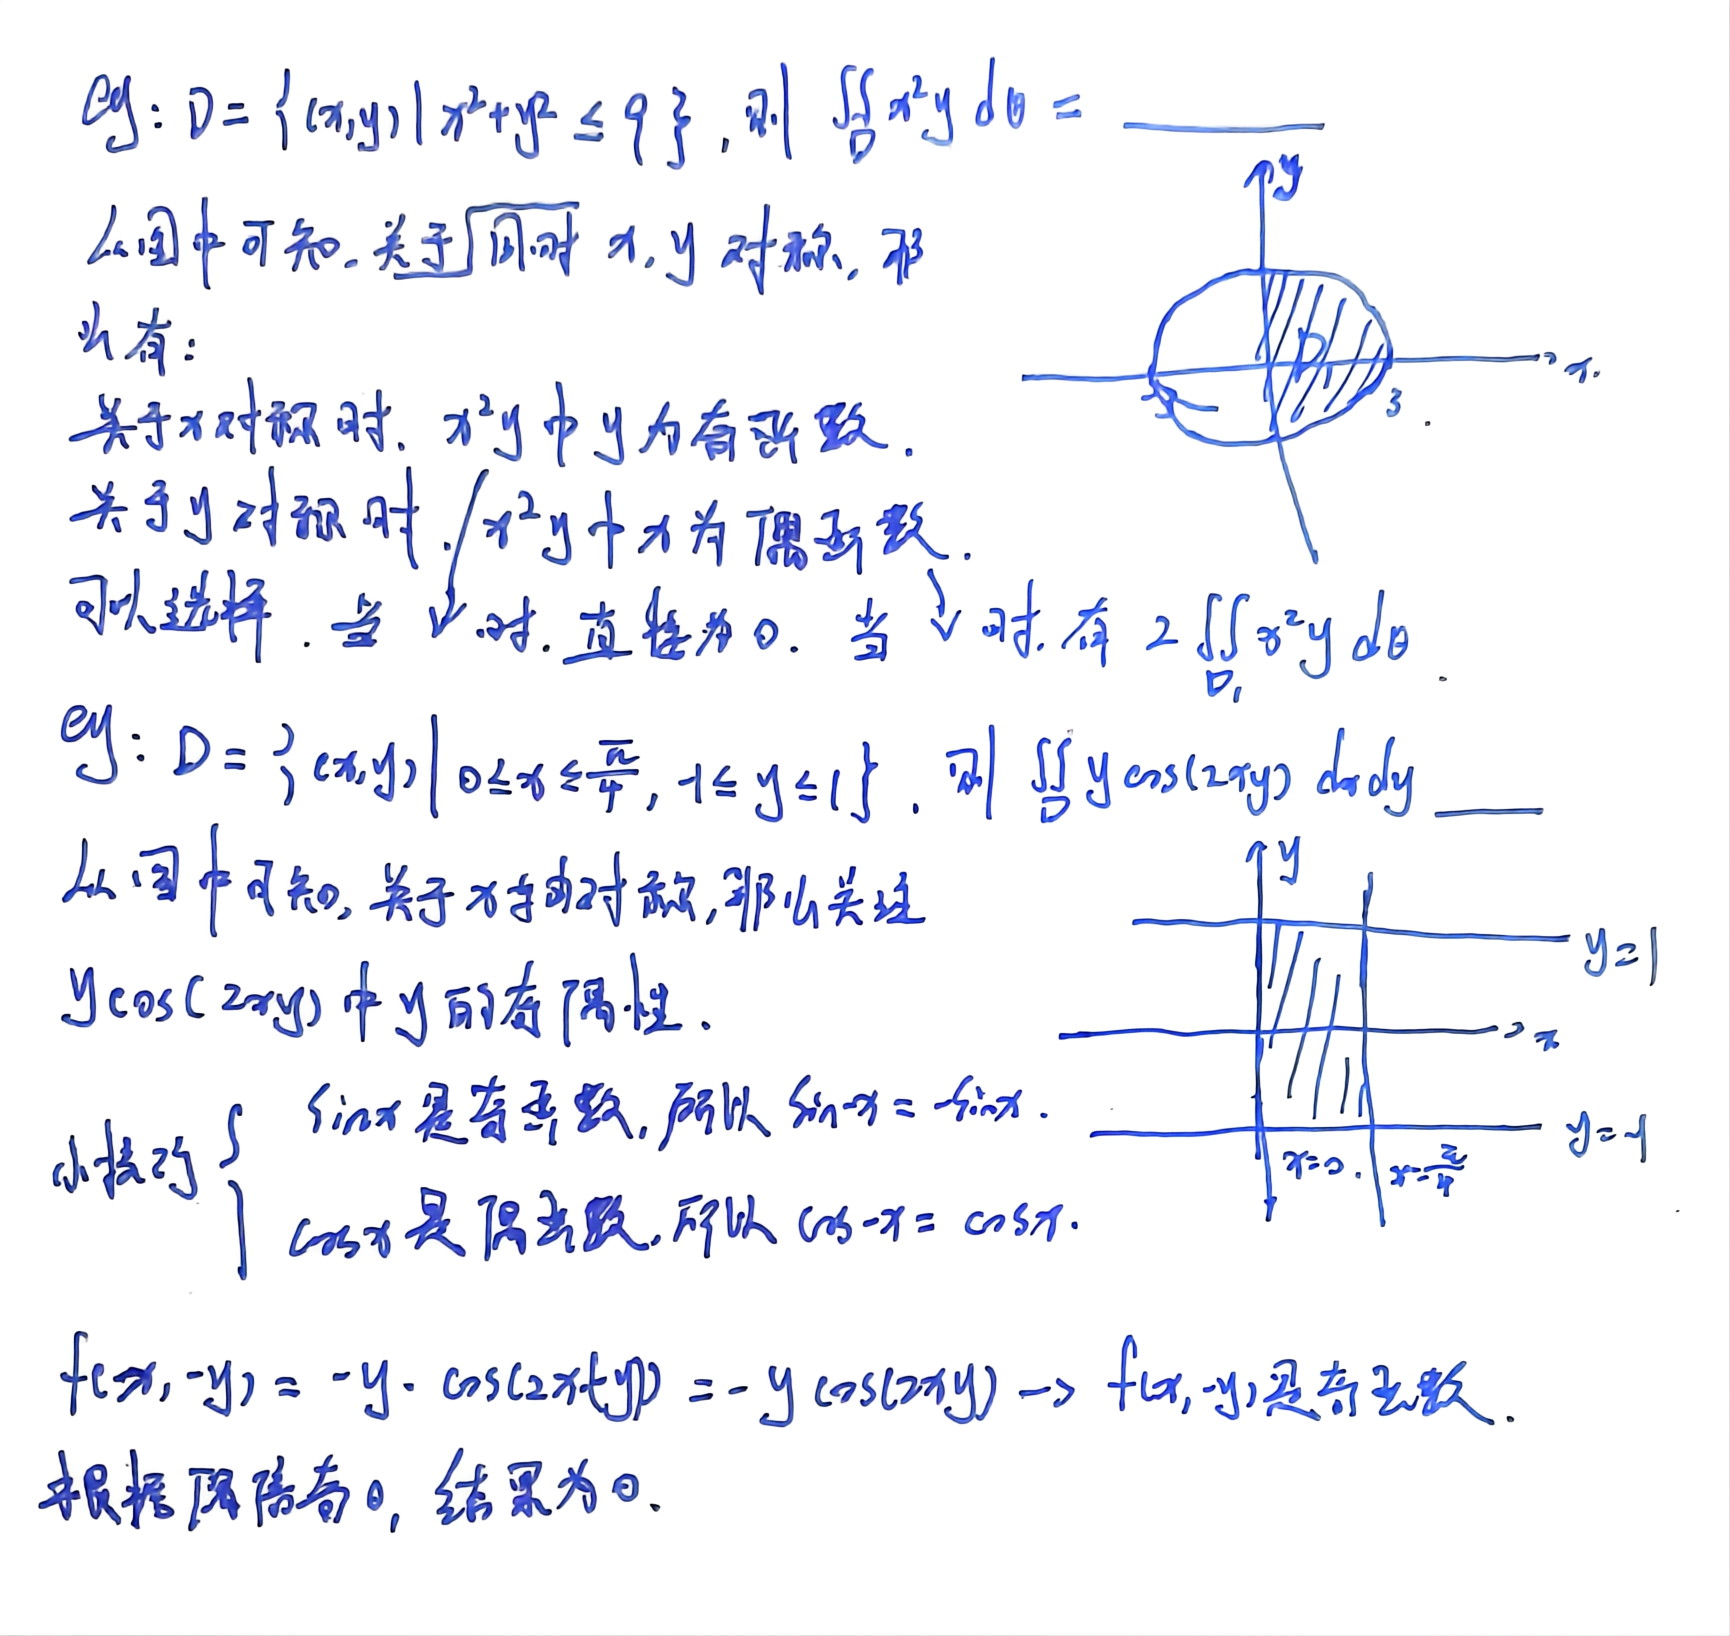 eg: D = {(x,y) | x²+y² ≤ 9}, 则 ∬_D x²y dθ = ____
从图中可知. 关于同时 x, y 对称, 那
么有:
关于x对称时. x²y 中 y 为奇函数.
关于y对称时. x²y中x为偶函数.
可以选择. 当↓时. 直接为0. 当↓时. 有 2∬_D₁ x²y dθ.
y
D
x.
-3
3
eg: D = {(x,y) | 0≤x≤π/4, -1≤y≤1}. 则 ∬_D y cos(2xy) dxdy ____
从图中可知, 关于x轴对称, 那么关注
y cos(2xy) 中 y 的奇偶性.
y
y=1
x
y=-1
x=0.
x=π/4
小技巧 {
sinx 是奇函数, 所以 sin-x = -sinx.
cosx 是偶函数, 所以 cos-x = cosx.
f(x,-y) = -y·cos(2x(-y)) = -y cos(2xy) → f(x,-y)是奇函数.
根据偶倍奇0, 结果为0.